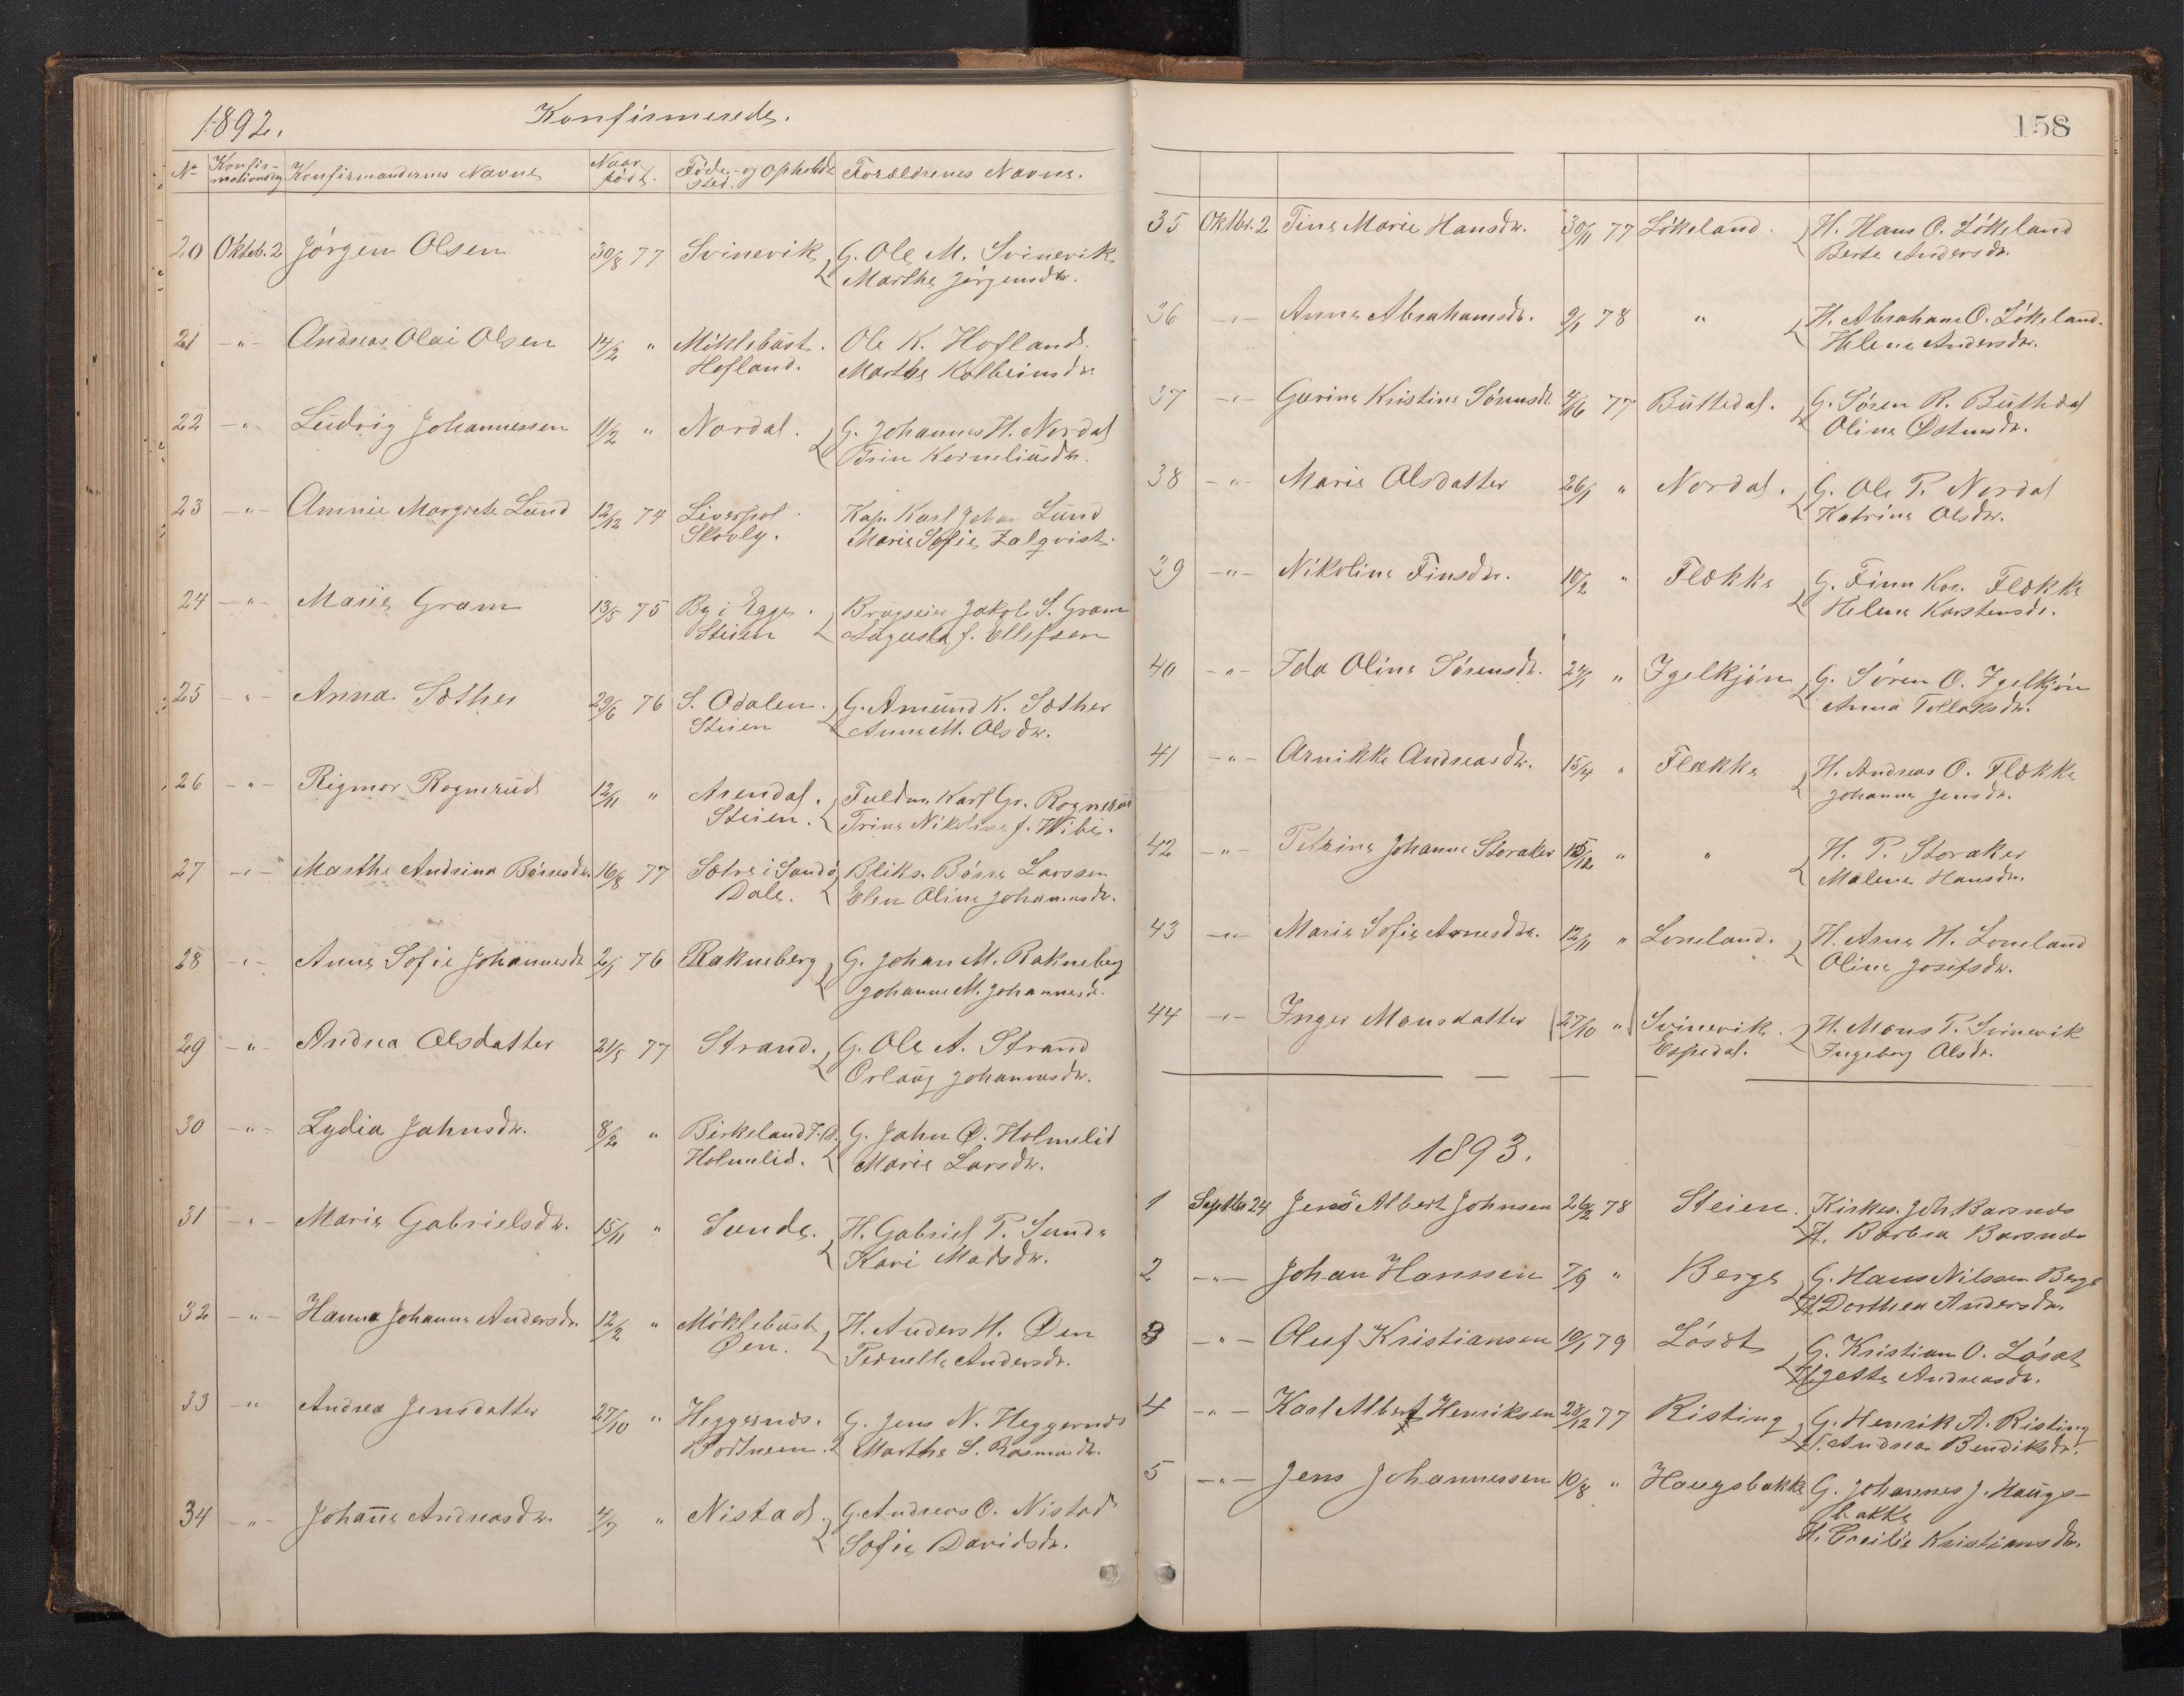 1892.
Konfirmerede.
No Konfir- Konfirmandernes Navne Naar Føde- og Opholds Forældrenes Navne.
mationsdag født. sted.
20 Oktob. 2 Jørgen Olsen 30/8 77 Svinevik G. Ole M. Svinevik
Marthe Jørgensdtr.
21 -"- Andreas Olai Olsen 14/2 " Myklebust. Ole K. Hofland.
Hofland. Marthe Kolbeinsdtr.
22 -"- Ludvig Johannessen 11/2 " Nordal. G. Johannes H. Nordal
Korneliusdtr.
23 -"- Margrete Lund 12/12 74 Liverpol Kap. Karl Johan Lund
Skovly. Marie Sofie Zalqvist.
24 -"- Marie Gram 13/5 75 By i Egge. Brugseier Jakob S. Gram
Steien Augusta f. Ellefsen
25 -"- Anna Sæther 29/6 76 S. Odalen. G. Amund K. Sæther
Steien Anne M. Olsdtr.
26 -"- Rigmor Rognerud 12/11 " Arendal. Fuldm. Karl Gr. Rognerud
Steien. Trine Nikoline f. Wibe.
27 -"- Marthe Andrina Børresdtr. 16/8 77 Sætre i Sandø Bliks. Børre Larssen
Dale. Elen Oline Johannesdtr.
28 -"- Anne Sofie Johannesdt 2/5 76 Rakneberg G. Johan M. Rakneberg
Johanne M. Johannesd.
29 -"- Andrea Olsdatter 21/5 77 Strand. G. Ole A. Strand
Orlaug Johannesdtr.
30 -"- Lydia Jahnsdtr. 8/2 " Birkeland F. G. Jahn O. Holmelid
Holmelid. Marie Larsdtr.
31 -"- Marie Gabrielsdtr. 15/11 " Sunde. H. Gabriel P. Sunde
Kari Madsdtr.
32 -"- Hanna Johanne Andersdtr. 12/2 " Myklebust H. Anders H. Øen
Øen. Pernelle Andersdtr.
33 -"- Andrea Jensdatter 27/10 " Heggernes. G. Jens N. Heggernes
Marthe S. Rasmusdtr.
34 -"- Johanne Andreasdtr. 4/7 " Nistad. G. Andreas O. Nistad
Sofie Davidsdtr.
158
35 Oktbr. 2 Tine Marie Hansdtr. 30/11 77 Løkeland. H. Hans O. Løkeland
Berte Andersdtr.
36 -"- Anne Abrahamsdtr. 9/1 78 " H. Abraham O. Løkeland.
Helene Andersdtr.
37 -"- Gurine Kristine Sørensdt. 4/6 77 Buttedal. G. Søren R. Buttedal
Oline Østensdtr.
38 -"- Marie Olsdatter 26/1 " Nordal. G. Ole P. Nordal
Katrine Olsdtr.
39 -"- Nikoline Finsdtr. 10/2 " Flekke G. Finn Kar. Flekke
Helene Karstensdtr.
40 -"- Ida Oline Sørensdtr. 24/1 " Igelkjøn G. Søren O. Igelkjøn
Anna Tollaksdtr.
41 -"- Arnikke Andreasdtr. 15/4 " Flekke H. Andreas O. Flekke
Johanne Jensdtr.
42 -"- Petrine Johanne Storaker 15/12 " " H. P. Storaker
Malene Hansdtr.
43 -"- Marie Sofie Arnesdtr. 12/11 " Loneland. H. Arne H. Loneland
Oline Josefsdtr.
44 -"- Inger Monsdatter 27/10 " Svinevik. H. Mons P. Svinevik
Espedal. Ingeborg Olsdtr.
1893.
1 Septbr 24 Jens Albert Johnsen 26/2 78 Steien. Kirkes. Joh. Barsnes
H. Barbra Barsnes
2 -"- Johan Hanssen 7/9 " Berge G. Hans Nilssen Berge
H. Dorthea Andersdtr.
3 -"- Oluf Kristiansen 10/1 79 Løset G. Kristian O. Løset
H. Jette Andreasdtr.
4 -"- Karl Albert Henriksen 28/12 77 Risting G. Henrik A. Risting
H. Andrea Bendiksdtr.
5 -"- Jens Johannessen 10/8 " Haugsbakke G. Johannes J. Haugs-
bakke
H. Cecilie Kristiansdtr.